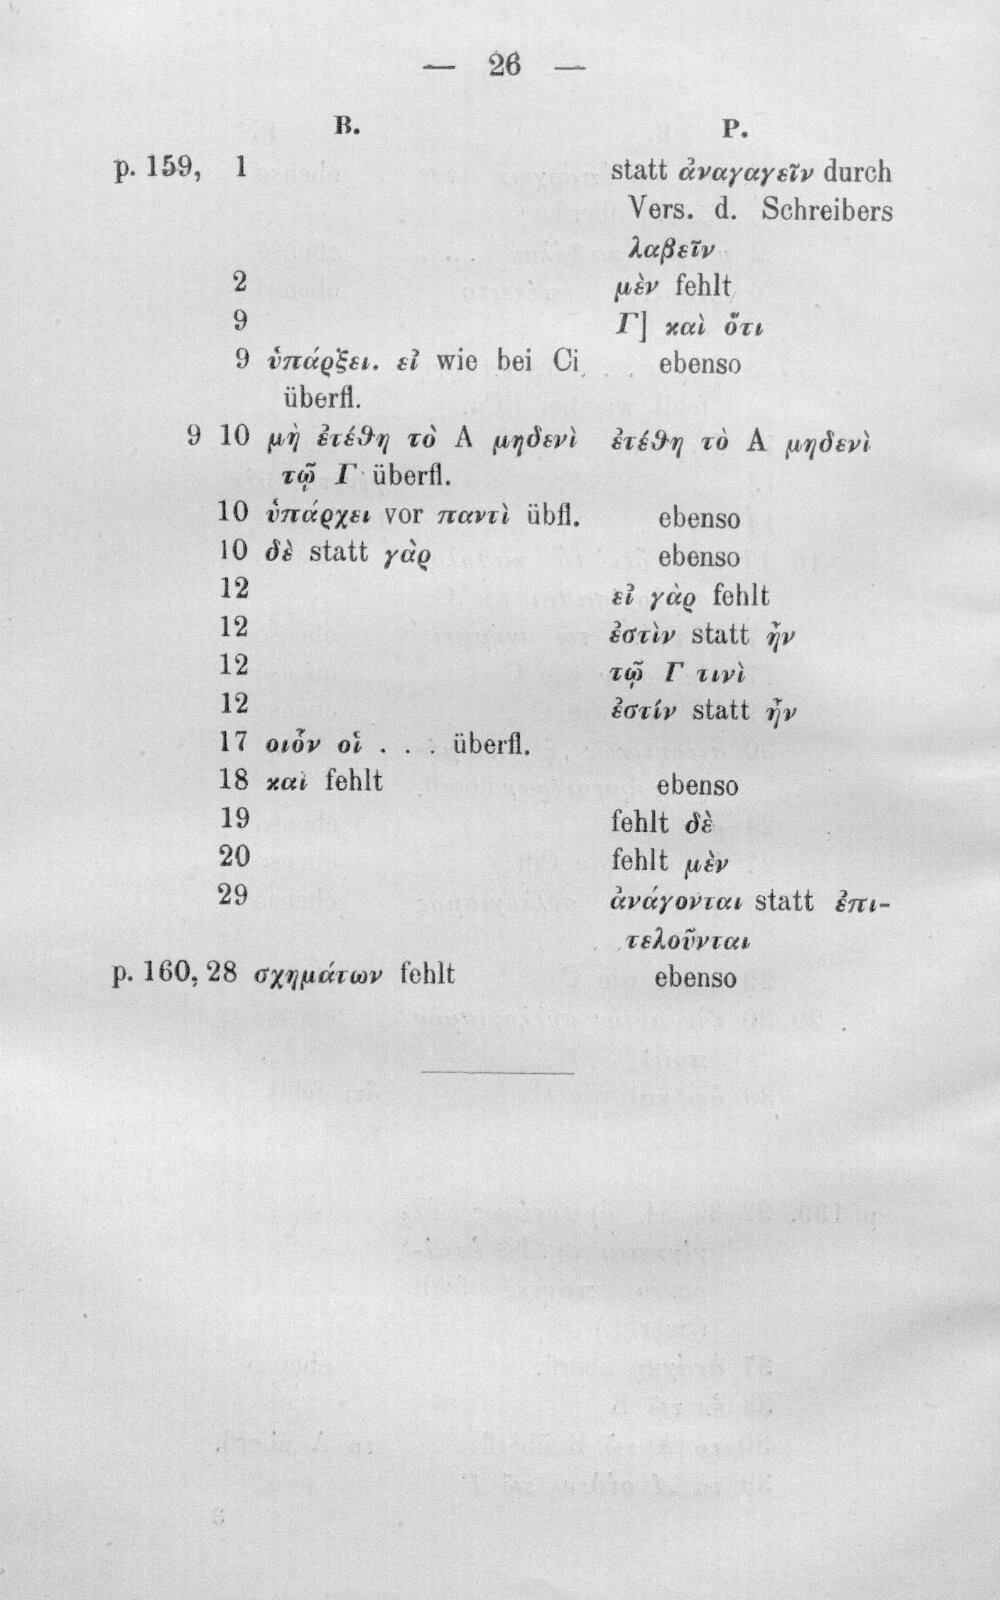 — 26 —
B. P.
p. 159, 1 statt ἀναγαγεῖν durch
Vers. d. Schreibers
λαβεῖν
2 μὲν fehlt
9 Γ] καὶ ὅτι
9 ὑπάρξει. εἰ wie bei Ci ebenso
überfl.
9 10 μὴ ἐτέθη τὸ A μηδενὶ ἐτέθη τὸ A μηδενὶ
τῷ Γ überfl.
10 ὑπάρχει vor παντὶ übfl. ebenso
10 δὲ statt γὰρ ebenso
12 εἰ γὰρ fehlt
12 ἐστὶν statt ἦν
12 τῷ Γ τινὶ
12 ἐστίν statt ἦν
17 οιὖν οἱ . . . überfl.
18 καὶ fehlt ebenso
19 fehlt δὲ
20 fehlt μὲν
29 ἀνάγονται statt ἐπι-
τελοῦνται
p. 160, 28 σχημάτων fehlt ebenso